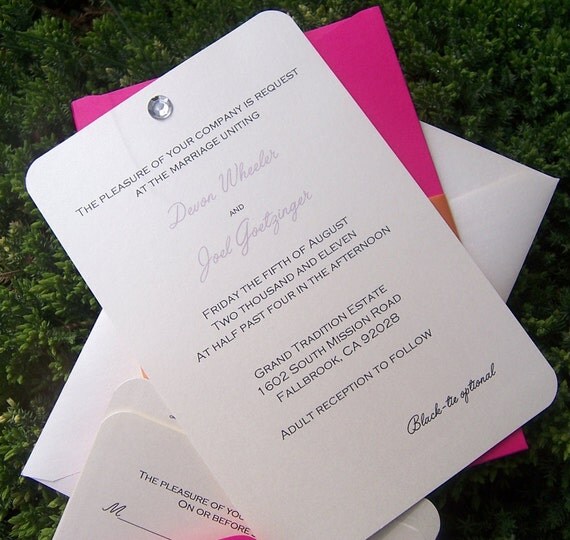 The pleasure of your company is request
at the marriage uniting
Devon Wheeler
and
Joel Goetzinger
Friday the fifth of August
Two thousand and eleven
at half past four in the afternoon
Grand Tradition Estate
1602 South Mission Road
Fallbrook, CA 92028
Adult reception to follow
Black-tie optional
The pleasure of
On or before
M